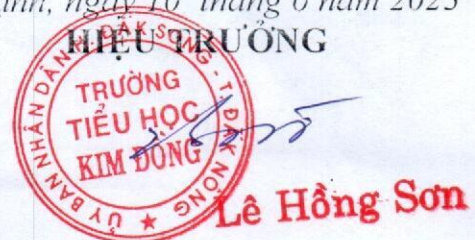 ngày 16 tháng 6 năm 2023
HIỆU TRƯỞNG
ỦY BAN NHÂN DÂN H. ĐẮK SONG - T. ĐẮK NÔNG
TRƯỜNG
TIỂU HỌC
KIM ĐỒNG
Lê Hồng Sơn